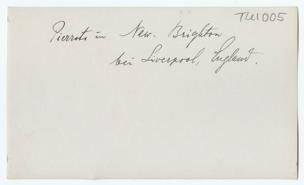 TW1005
Pierrots in New. Brighton
bei Liverpool, England.